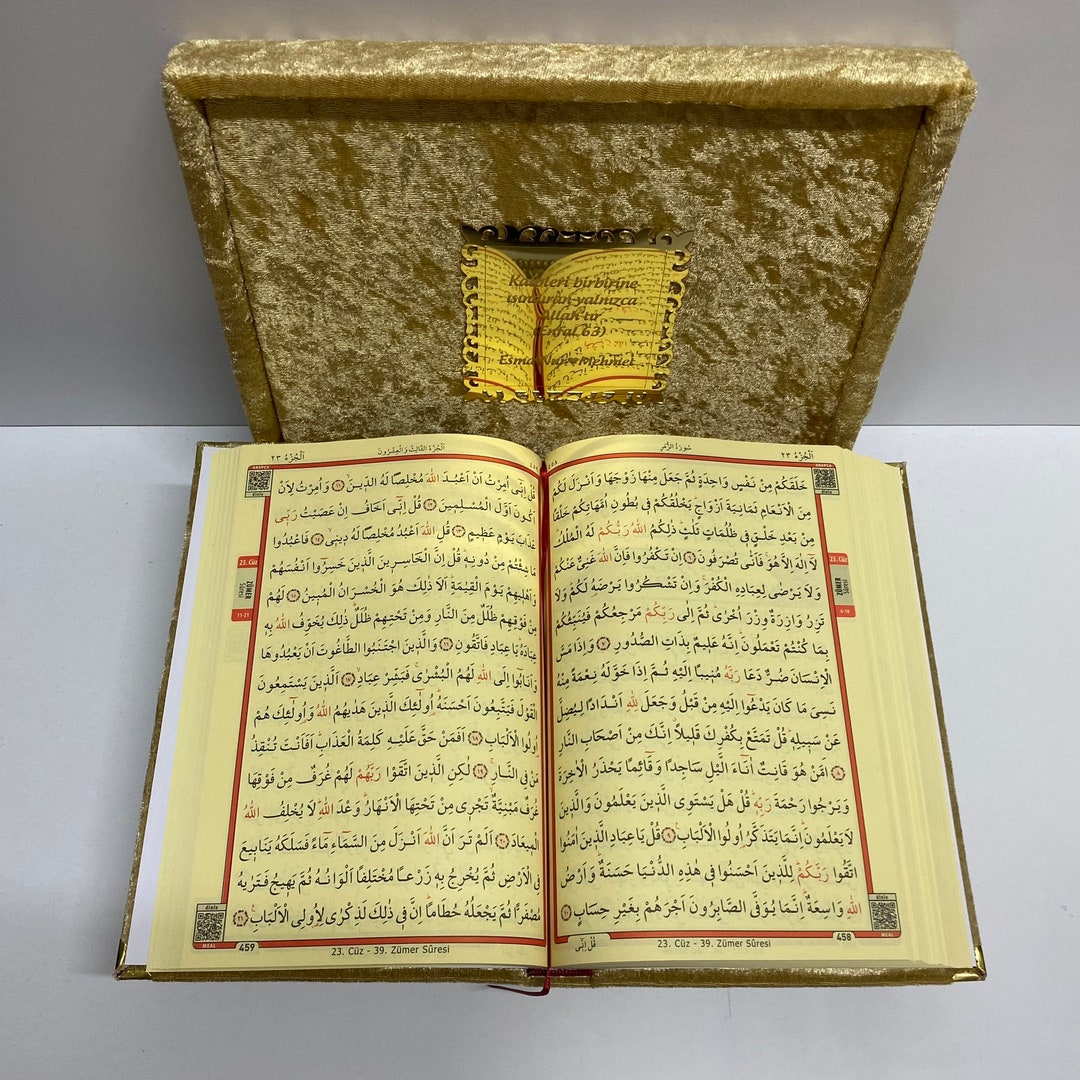 Kalpleri birbirine
ısındıran yalnızca
Allah'tır
(Enfal 63)
Esma Nur & Mehmet
اَلْجُزْءُ ٢٣
سُورَةُ الزُّمَرِ
ARAPÇA
dinle
خَلَقَكُمْ مِنْ نَفْسٍ وَاحِدَةٍ ثُمَّ جَعَلَ مِنْهَا زَوْجَهَا وَاَنْزَلَ لَكُمْ
مِنَ الْاَنْعَامِ ثَمَانِيَةَ اَزْوَاجٍ يَخْلُقُكُمْ فٖى بُطُونِ اُمَّهَاتِكُمْ خَلْقًا
مِنْ بَعْدِ خَلْقٍ فٖى ظُلُمَاتٍ ثَلٰثٍ ذٰلِكُمُ اللّٰهُ رَبُّكُمْ لَهُ الْمُلْكُ
لَٓا اِلٰهَ اِلَّا هُوَ فَاَنّٰى تُصْرَفُونَ ﴿٦﴾ اِنْ تَكْفُرُوا فَاِنَّ اللّٰهَ غَنِىٌّ عَنْكُمْ
وَلَا يَرْضٰى لِعِبَادِهِ الْكُفْرَ وَاِنْ تَشْكُرُوا يَرْضَهُ لَكُمْ وَلَا
تَزِرُ وَازِرَةٌ وِزْرَ اُخْرٰى ثُمَّ اِلٰى رَبِّكُمْ مَرْجِعُكُمْ فَيُنَبِّئُكُمْ
بِمَا كُنْتُمْ تَعْمَلُونَ اِنَّهُ عَلٖيمٌ بِذَاتِ الصُّدُورِ ﴿٧﴾ وَاِذَا مَسَّ
الْاِنْسَانَ ضُرٌّ دَعَا رَبَّهُ مُنٖيبًا اِلَيْهِ ثُمَّ اِذَا خَوَّلَهُ نِعْمَةً مِنْهُ
نَسِىَ مَا كَانَ يَدْعُٓوا اِلَيْهِ مِنْ قَبْلُ وَجَعَلَ لِلّٰهِ اَنْدَادًا لِيُضِلَّ
عَنْ سَبٖيلِهٖ قُلْ تَمَتَّعْ بِكُفْرِكَ قَلٖيلًا اِنَّكَ مِنْ اَصْحَابِ النَّارِ
﴿٨﴾ اَمَّنْ هُوَ قَانِتٌ اٰنَٓاءَ الَّيْلِ سَاجِدًا وَقَٓائِمًا يَحْذَرُ الْاٰخِرَةَ
وَيَرْجُوا رَحْمَةَ رَبِّهٖ قُلْ هَلْ يَسْتَوِى الَّذٖينَ يَعْلَمُونَ وَالَّذٖينَ
لَا يَعْلَمُونَ اِنَّمَا يَتَذَكَّرُ اُولُوا الْاَلْبَابِ ﴿٩﴾ قُلْ يَا عِبَادِ الَّذٖينَ اٰمَنُوا
اتَّقُوا رَبَّكُمْ لِلَّذٖينَ اَحْسَنُوا فٖى هٰذِهِ الدُّنْيَا حَسَنَةٌ وَاَرْضُ
اللّٰهِ وَاسِعَةٌ اِنَّمَا يُوَفَّى الصَّابِرُونَ اَجْرَهُمْ بِغَيْرِ حِسَابٍ ﴿١٠﴾
23. Cüz
ZÜMER
Sûresi
6-10
dinle
MEAL
قُلْ اِنّٖى
23. Cüz - 39. Zümer Sûresi
458
اَلْجُزْءُ الثَّالِثُ وَالْعِشْرُونَ
اَلْجُزْءُ ٢٣
ARAPÇA
dinle
قُلْ اِنّٖٓى اُمِرْتُ اَنْ اَعْبُدَ اللّٰهَ مُخْلِصًا لَهُ الدّٖينَ ﴿١١﴾ وَاُمِرْتُ لِاَنْ
اَكُونَ اَوَّلَ الْمُسْلِمٖينَ ﴿١٢﴾ قُلْ اِنّٖٓى اَخَافُ اِنْ عَصَيْتُ رَبّٖى
عَذَابَ يَوْمٍ عَظٖيمٍ ﴿١٣﴾ قُلِ اللّٰهَ اَعْبُدُ مُخْلِصًا لَهُ دٖينٖى ﴿١٤﴾ فَاعْبُدُوا
مَا شِئْتُمْ مِنْ دُونِهٖ قُلْ اِنَّ الْخَاسِرٖينَ الَّذٖينَ خَسِرُٓوا اَنْفُسَهُمْ
وَاَهْلٖيهِمْ يَوْمَ الْقِيٰمَةِ اَلَا ذٰلِكَ هُوَ الْخُسْرَانُ الْمُبٖينُ ﴿١٥﴾ لَهُمْ
مِنْ فَوْقِهِمْ ظُلَلٌ مِنَ النَّارِ وَمِنْ تَحْتِهِمْ ظُلَلٌ ذٰلِكَ يُخَوِّفُ اللّٰهُ بِهٖ
عِبَادَهُ يَا عِبَادِ فَاتَّقُونِ ﴿١٦﴾ وَالَّذٖينَ اجْتَنَبُوا الطَّاغُوتَ اَنْ يَعْبُدُوهَا
وَاَنَابُٓوا اِلَى اللّٰهِ لَهُمُ الْبُشْرٰى فَبَشِّرْ عِبَادِ ﴿١٧﴾ اَلَّذٖينَ يَسْتَمِعُونَ
الْقَوْلَ فَيَتَّبِعُونَ اَحْسَنَهُ اُولٰٓئِكَ الَّذٖينَ هَدٰيهُمُ اللّٰهُ وَاُولٰٓئِكَ هُمْ
اُولُوا الْاَلْبَابِ ﴿١٨﴾ اَفَمَنْ حَقَّ عَلَيْهِ كَلِمَةُ الْعَذَابِ اَفَاَنْتَ تُنْقِذُ
مَنْ فِى النَّارِ ﴿١٩﴾ لٰكِنِ الَّذٖينَ اتَّقَوْا رَبَّهُمْ لَهُمْ غُرَفٌ مِنْ فَوْقِهَا
غُرَفٌ مَبْنِيَّةٌ تَجْرٖى مِنْ تَحْتِهَا الْاَنْهَارُ وَعْدَ اللّٰهِ لَا يُخْلِفُ اللّٰهُ
الْمٖيعَادَ ﴿٢٠﴾ اَلَمْ تَرَ اَنَّ اللّٰهَ اَنْزَلَ مِنَ السَّمَٓاءِ مَٓاءً فَسَلَكَهُ يَنَابٖيعَ
فِى الْاَرْضِ ثُمَّ يُخْرِجُ بِهٖ زَرْعًا مُخْتَلِفًا اَلْوَانُهُ ثُمَّ يَهٖيجُ فَتَرٰيهُ
مُصْفَرًّا ثُمَّ يَجْعَلُهُ حُطَامًا اِنَّ فٖى ذٰلِكَ لَذِكْرٰى لِاُولِى الْاَلْبَابِ ﴿٢١﴾
23. Cüz
ZÜMER
Sûresi
11-21
dinle
MEAL
459
23. Cüz - 39. Zümer Sûresi